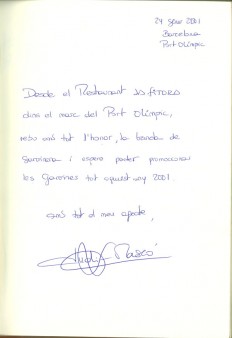 24 gener 2001
Barcelona
Port Olímpic
Desde el Restaurant
dins el marc del Port Olímpic,
rebu amb tot l'honor, la banda de
i espero poder promocionar
les Gavarres tot aquest any 2001
amb tot el meu afecte,